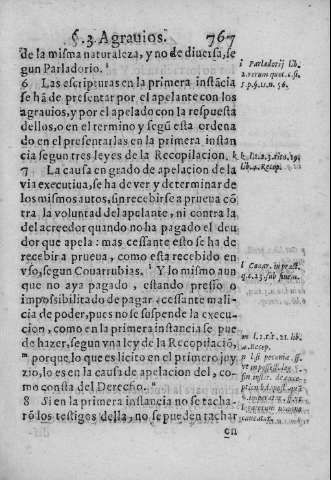 §.3 Agrauios. 767
de la misma naturaleza, y no de diuersa, se
gun Parladorio. i
6 Las escripturas en la primera instãcia
se hã de presentar por el apelante con los
agrauios, y por el apelado con la respuesta
dellos, o en el termino y segũ esta ordena
do en el presentarlas en la primera instan
cia segun tres leyes de la Recopilacion. k
7 La causa en grado de apelacion de la
via executiua, se ha de ver y determinar de
los mismos autos, sin recebirse a prueua cõ
tra la voluntad del apelante, ni contra la
del acreedor quando no ha pagado el deu
dor que apela: mas cessante esto se ha de
recebir a prueua, como esta recebido en
vso, segun Couarrubias. l Y lo mismo aun
que no aya pagado, estando presso o
impossibilitado de pagar, cessante mali-
cia de poder, pues no se suspende la execu-
cion, como en la primera instancia se pue
de hazer, segun vna ley de la Recopilaciõ,
m porque, lo que es licito en el primero juy
zio, lo es en la causa de apelacion del, co-
mo consta del Derecho. n
8 Si en la primera instancia no se tacha-
rõ los testigos della, no se pueden tachar
en
i Parladorij lib.
2.rerum quot.c.fi.
5.p.§.11.n. 56.
k l.
lib.4.Recop.
l Couar. in pract.
m l.1.tit.21.lib.
4.Recop.